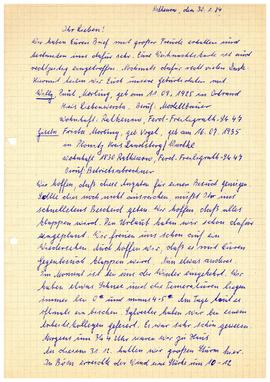 Rathenow, den 30.1.84
Ihr Lieben!
Wir haben Euren Brief mit großer Freude erhalten und
bedanken uns dafür sehr. Eure Weihnachtskarte ist auch
rechtzeitig eingetroffen. Nochmals dafür recht vielen Dank.
Hiermit teilen wir Euch unsere Geburtsdaten mit.
Willy geb. am 11.09.1925 in
Beruf: Modellbauer
wohnhaft: Rathenow, Ferd.-Freiligrath-Str. 47
geb. Vogel, geb. am 16.09.1935
in
wohnhaft 1830 Rathenow, Ferd.-Freiligrath-Str. 47
Beruf:
Wir hoffen, daß diese Angaben für einen Besuch genügen.
Sollte dies noch nicht ausreichen, müßt Ihr uns
schnellstens Bescheid geben. Wir hoffen, daß alles
klappen wird. Den Urlaub haben wir schon dafür
eingeplant. Wir freuen uns schon auf ein
Wiedersehen. Auch hoffen wir, daß es mit Euren
Gegenbesuch klappen wird. Nun etwas anderes
Im Moment ist bei uns der Winter eingekehrt. Wir
haben etwas Schnee und die Temperaturen liegen
immer bei 0° und minus 4-5°. Am Tage taut es
oftmals ein bischen. Sylvester haben wir bei einem
Arbeitskollegen gefeiert. Es war sehr schön gewesen.
Morgens um 4 Uhr waren wir zu Haus.
An diesem 31.12. hatten wir großen Sturm hier.
In Böen erreichte der Wind eine Stärke von 10-12